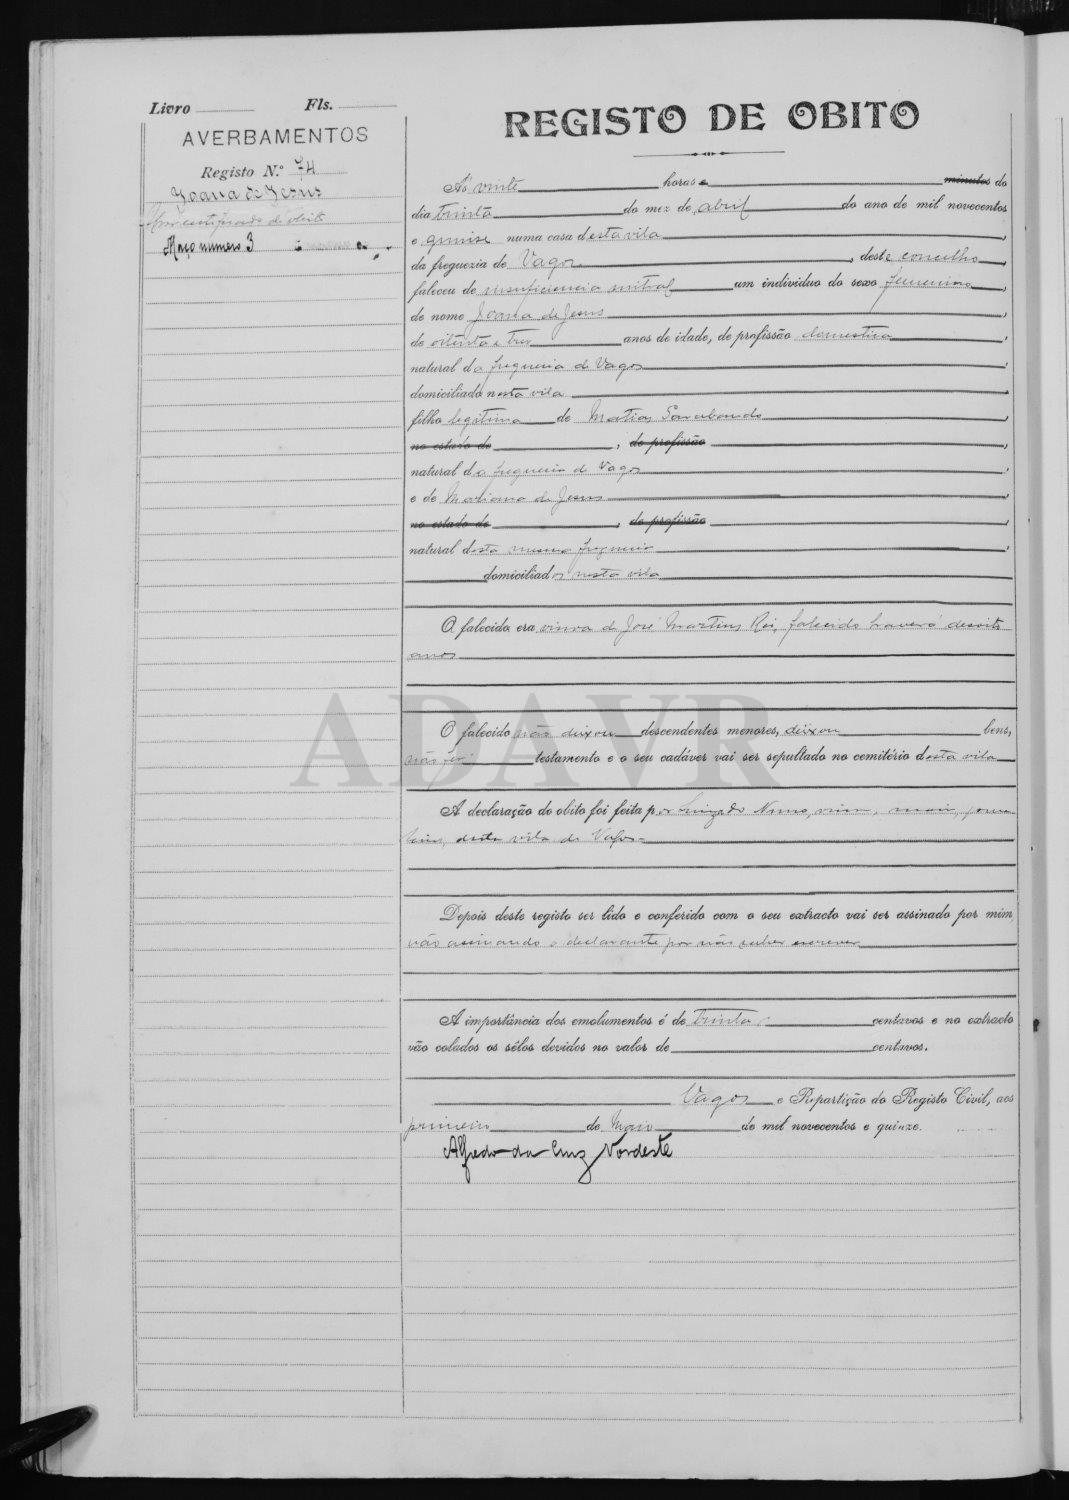 Livro Fls.
AVERBAMENTOS
Registo N.º 74
Joana de Jesus
Um certificado de obito
Maço numero 3
REGISTO DE OBITO
Ás vinte horas e minutos do
dia trinta do mez de abril do ano de mil novecentos
e quinse numa casa desta vila,
da freguezia de Vagos, deste concelho,
faleceu de insuficiencia mitral um individuo do sexo femenino,
de nome Joana de Jesus,
de oitenta e tres anos de idade, de profissão domestica,
natural da freguesia de Vagos,
domiciliado nesta vila,
filho legitima de Matias Sarabando,
no estado de, de profissão,
natural da freguesia de Vagos,
e de Mariana de Jesus,
no estado de, de profissão,
natural desta mesma freguesia,
domiciliados nesta vila
O falecido era viuva de José Martins Rei, falecido haverá desoito
anos
O falecido não deixou descendentes menores, deixou bens,
não fez testamento e o seu cadáver vai ser sepultado no cemitério desta vila
ADAVR
A declaração do obito foi feita por Nunes, maior,
desta vila de Vagos
Depois deste registo ser lido e conferido com o seu extracto vai ser assinado por mim
não assinando o declarante por não saber escrever
A importância dos emolumentos é de trinta centavos e no extracto
vão colados os sêlos devidos no valor de centavos.
Vagos e Repartição do Registo Civil, aos
primeiro de Maio de mil novecentos e quinze.
Alfredo da Cruz Nordeste